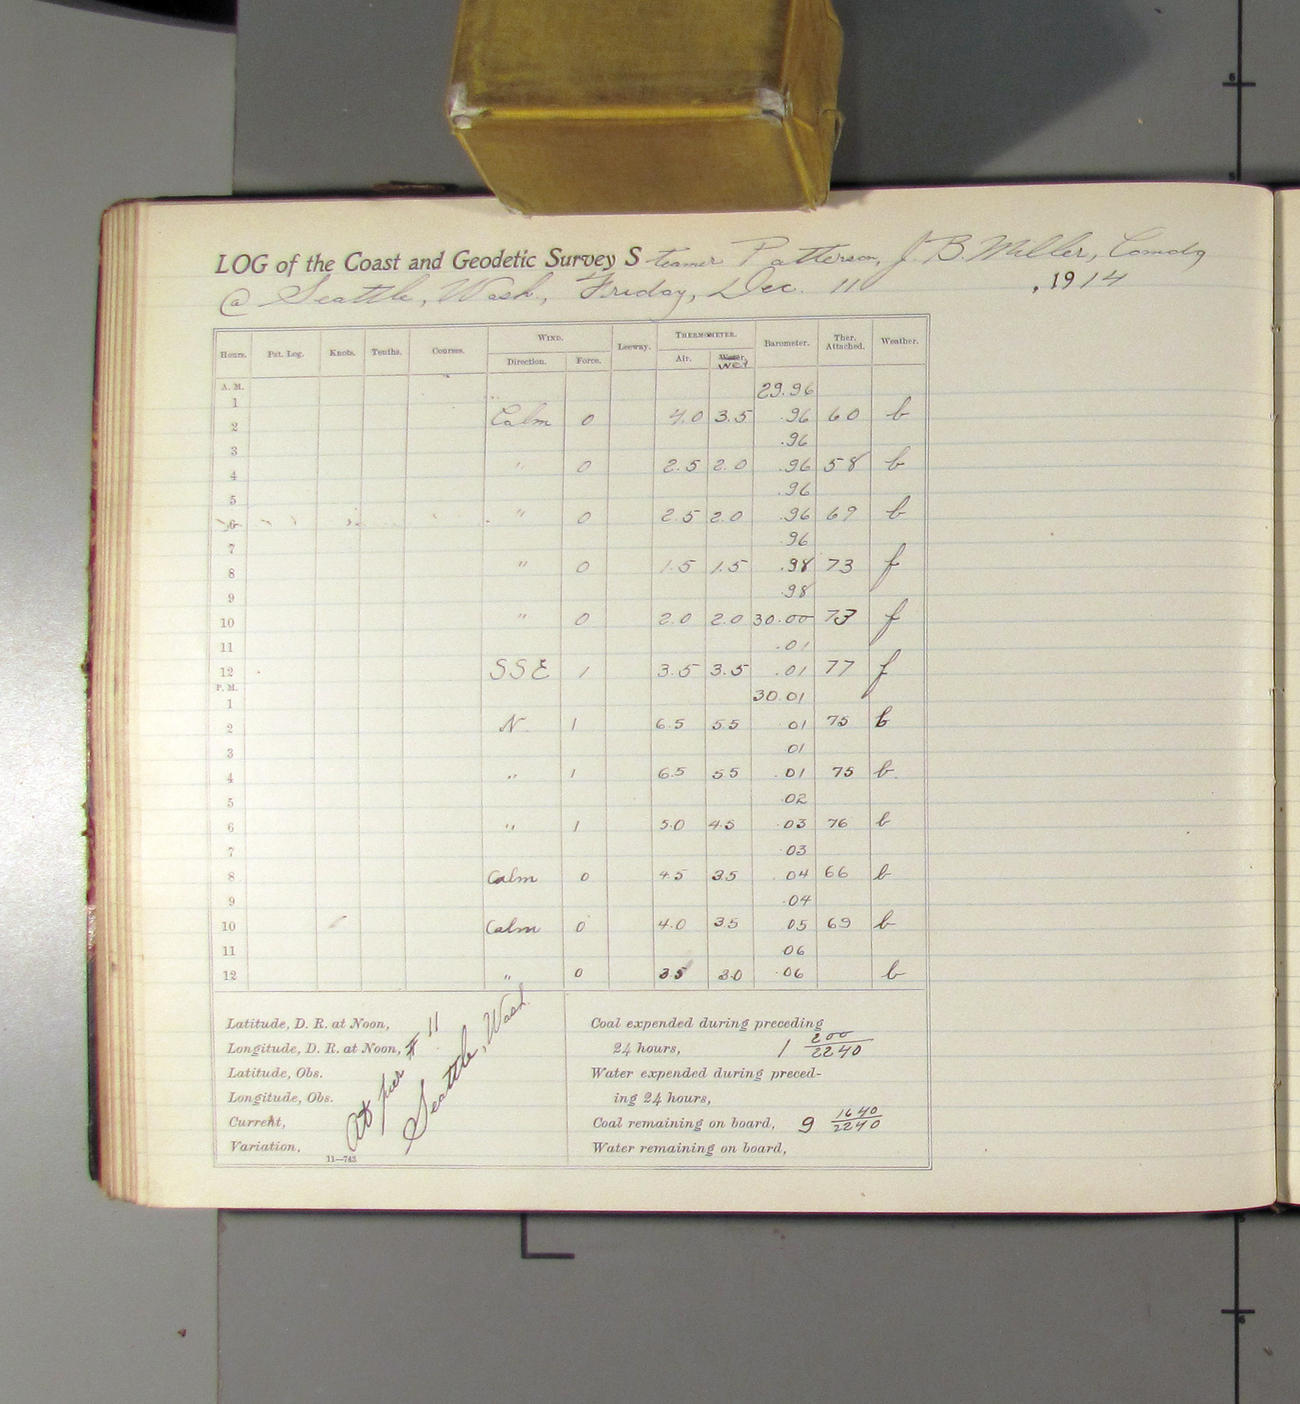 LOG of the Coast and Geodetic Survey Steamer Patterson, J. B. Miller, Comdg
@ Seattle, Wash., Friday, Dec. 11, 1914
Hours. Pat. Log. Knots. Tenths. Courses. WIND. Leeway. THERMOMETER. Barometer. Ther. Attached. Weather.
Direction. Force. Air. Water. Wet
A. M. 29.96
1
2 Calm 0 4.0 3.5 .96 60 b
3 .96
4 " 0 2.5 2.0 .96 58 b
5 .96
6 " 0 2.5 2.0 .96 69 b
7 .96
8 " 0 1.5 1.5 .98 73 f
9 .98
10 " 0 2.0 2.0 30.00 73 f
11 .01
12 SSE 1 3.5 3.5 .01 77 f
P. M.
1 30.01
2 N 1 6.5 5.5 01 75 b
3 01
4 " 1 6.5 5.5 .01 75 b.
5 .02
6 " 1 5.0 4.5 .03 76 b
7 .03
8 Calm 0 4.5 3.5 .04 66 b
9 .04
10 Calm 0 4.0 3.5 05 69 b
11 06
12 " 0 3.5 3.0 .06 b
Latitude, D. R. at Noon,
Longitude, D. R. at Noon,
Latitude, Obs.
Longitude, Obs.
Current,
Variation,
11—743
At pier # 11
Seattle, Wash
Coal expended during preceding
24 hours, 1 200/2240
Water expended during preced-
ing 24 hours,
Coal remaining on board, 9 1640/2240
Water remaining on board,